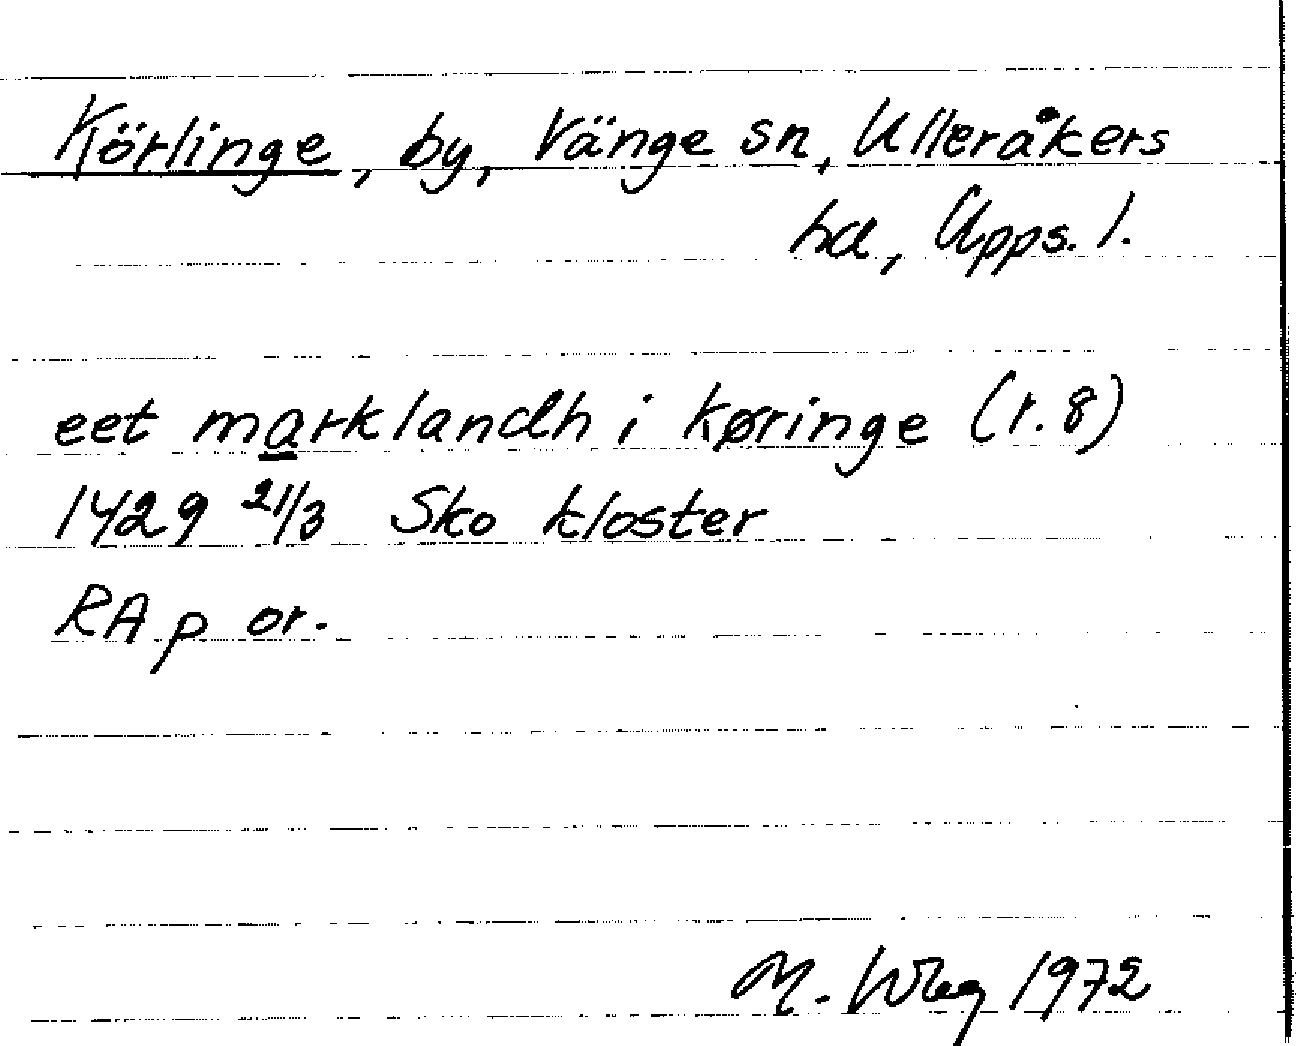 Körlinge, by, Vänge sn, Ulleråkers
hd, Upps. l.
eet marklandh i køringe (r. 8)
1429 21/3 Sko kloster
RA p or.
M. Wbg 1972